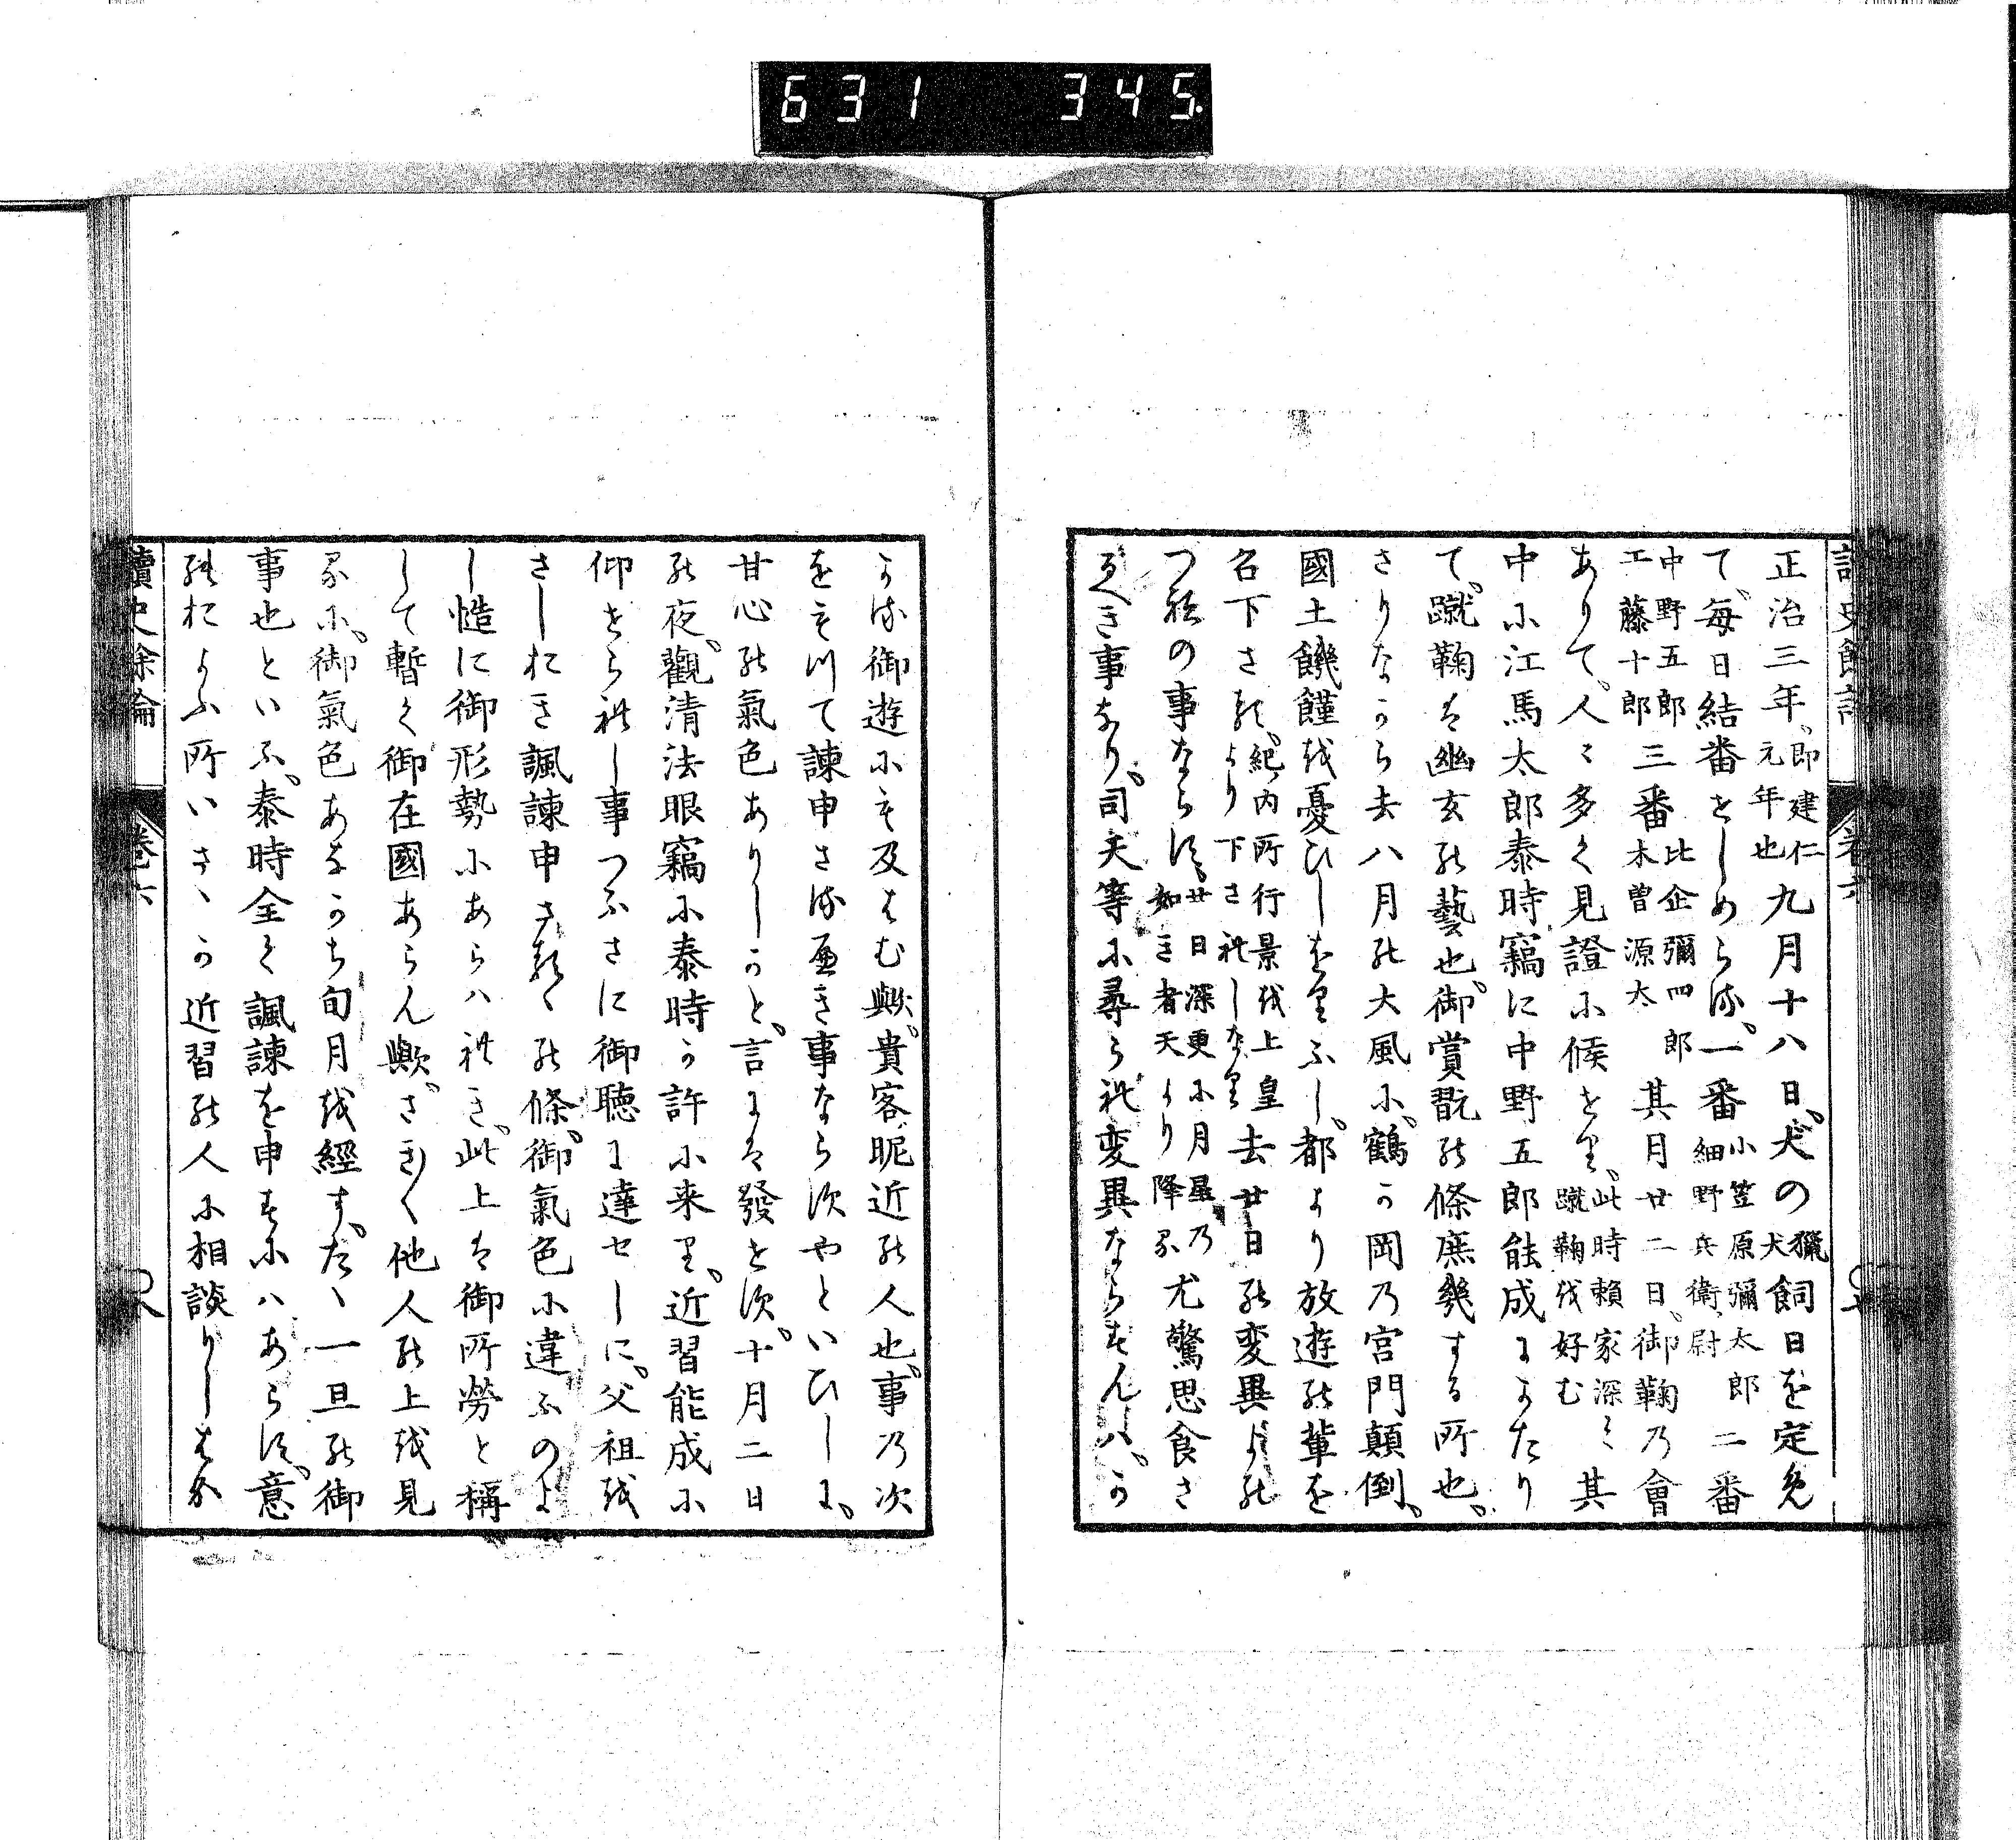 631 345
正治三年、即建仁元年也九月十八日、犬の獵犬飼日を定免
て、毎日結番をしめらる、一番小笠原彌太郎細野兵衛尉二番
中野五郎工藤十郎三番比企彌四郎木曽源太其月廿二日、御鞠乃會
ありて、人々多く見證に候せり、此時頼家深く蹴鞠を好む其
中に江馬太郎泰時竊に中野五郎能成にかたり
て、蹴鞠は幽玄の藝也、御賞翫の條庶幾する所也、
さりなから去八月の大風に、鶴か岡乃宮門顛倒、
國土饑饉を憂ひしをりふし、都より放遊の輩を
召下さる、紀内所行景を上皇より下されしなり去廿日の変異よの
つねの事ならす、廿日深更に月星乃如き者天より降る尤驚思食さ
るへき事なり、司天等に尋られ変異ならすんハ、か
讀史餘論 卷六
かる御遊にも及はむ歟、貴客昵近の人也、事乃次
をもつて諫申さるへき事ならすやといひしに、
甘心の氣色ありしかと、言には發せす、十月二日
の夜、觀清法眼竊に泰時か許に来り、近習能成に
仰せられし事つふさに御聴に達せしに、父祖を
さしおき諷諫申さるゝの條、御氣色に違ふのよ
し慥に御形勢にあらハれき、此上は御所勞と稱
して暫く御在國あらん歟、さきく他人の上を見
るに、御氣色あなかち旬月を經す、たゝ一旦の御
事也といふ、泰時全く諷諫を申すにハあらす、意
のおよふ所いさゝか近習の人に相談りしはか
讀史餘論 卷六